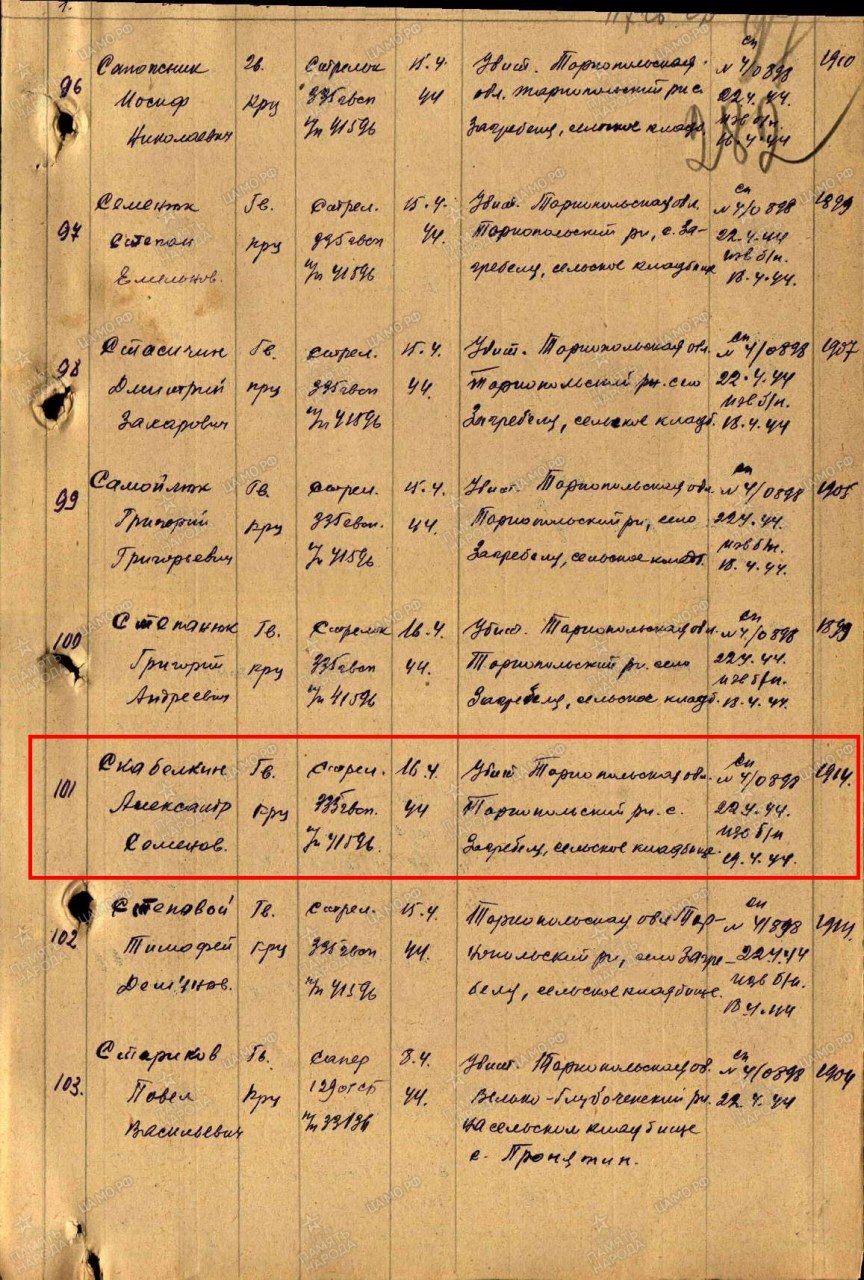 1.
96 Сапопсник Гв. Стрелок 15.4. Убит. Тарнопольская сп 1910
Иосиф крц 335 гвсп 44 обл. Тарнопольский р-н с. № 4/0898
Николаевич п/п 41596 Загребелу, сельское кладб. 22.4.44.
изв б/н.
18.4.44
282
97 Семенюк Гв. Стрел. 15.4. Убит. Тарнопольская обл. сп № 4/0898 1899
Степан крц 335 гвсп 44. Тарнопольский р-н, с. За- 22.4.44
Емельянов. п/п 41596 гребелу, сельское кладбище изв б/н.
18.4.44.
98 Стасичин Гв. Стрел. 15.4. Убит. Тарнопольская обл. сп № 4/0898 1907
Дмитрий крц 335 гвсп 44. Тарнопольский р-н. село 22.4.44
Захарович п/п 41596 Загребелу, сельское кладб. изв б/н.
18.4.44
99 Самойлюк Гв. Стрел. 15.4. Убит. Тарнопольская обл. сп № 4/0898 1905
Григорий крц 335 гвсп. 44. Тарнопольский р-н, село 22.4.44.
Григорьевич п/п 41596 Загребелу, сельское кладб. изв б/н.
18.4.44.
100 Степанюк Гв. Стрелок 16.4. Убит. Тарнопольская обл. сп № 4/0898 1899
Григорий крц 335 гвсп 44. Тарнопольский р-н. село 22.4.44.
Андреевич п/п 41596 Загребелу, сельское кладб. изв б/н.
18.4.44.
101 Скабелкин Гв. Стрел. 16.4. Убит Тарнопольская обл. сп № 4/0898 1914.
Александр крц 335 гвсп. 44 Тарнопольский р-н. с. 22.4.44.
Семенов. п/п 41596. Загребелу, сельское кладбище. изв б/н
19.4.44.
102 Степавой Гв. Стрел. 15.4. Тарнопольская обл. Тар- сп № 4/898
Тимофей крц 335 гвсп 44. нопольский р-н, село Загре- 22.4.44
Демьянов. п/п 41596 белу, сельское кладбище. изв б/н.
18.4.44
103. Стариков Гв. сапер 8.4. Убит. Тарнопольская об. сп № 4/0898 1904
Павел крц 44. Велико-Глубоченский р-н. 22.4.44
Васильевич на сельском кладбище
с. Пронятин.